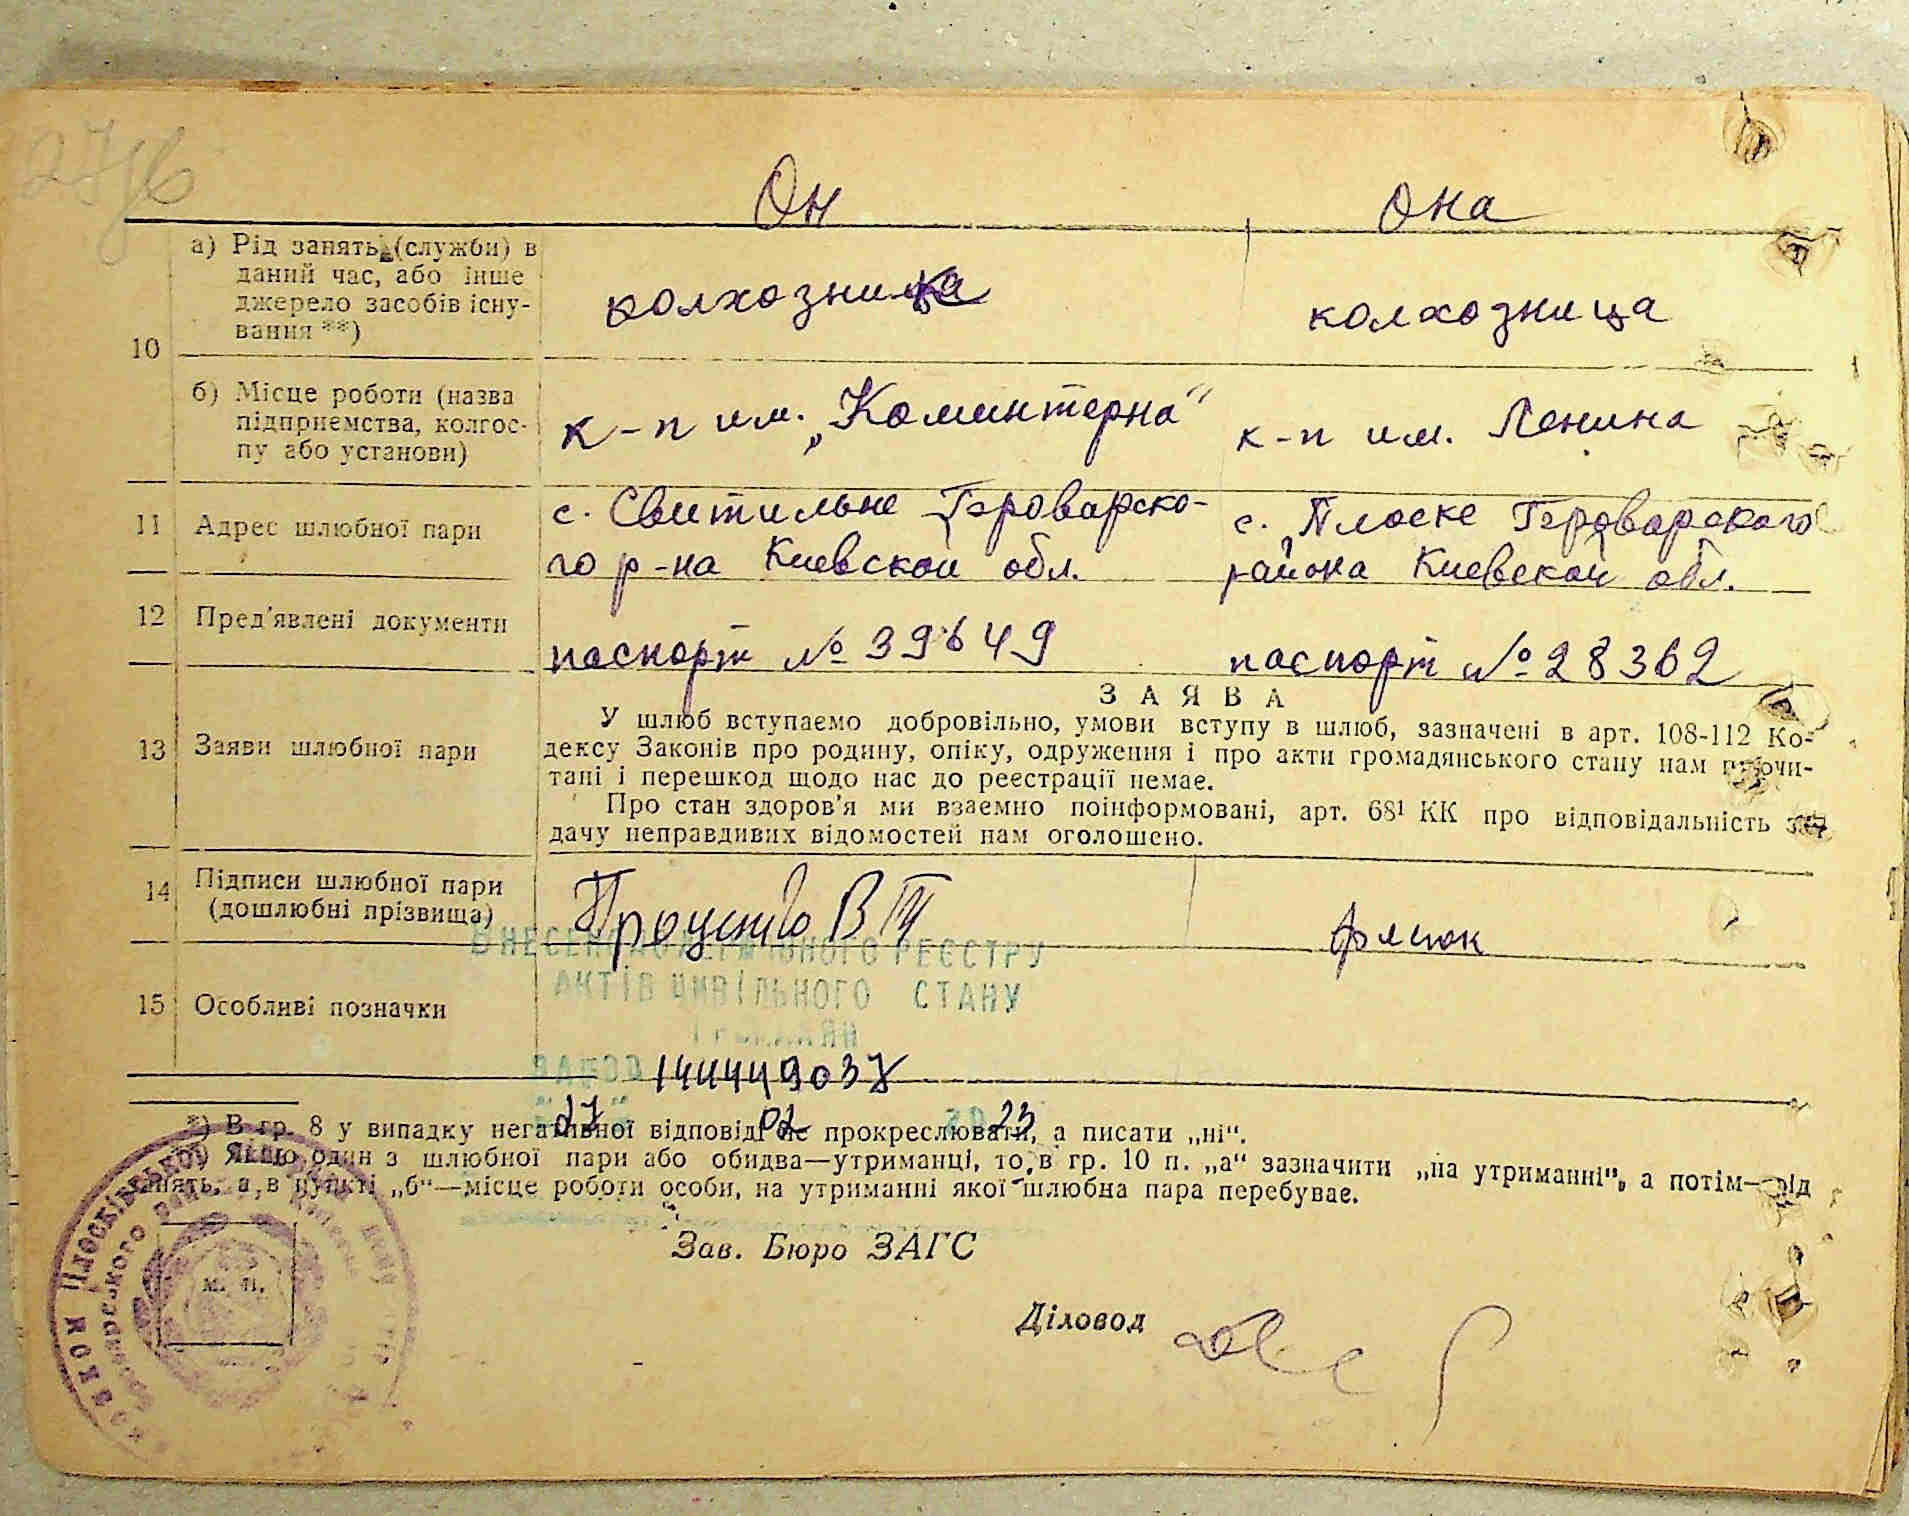 Он Она
10
а) Рід занять (служби) в
даний час, або інше
джерело засобів існу-
вання **)
колхозник колхозница
б) Місце роботи (назва
підприємства, колгос-
пу або установи)
к-п им. „Коминтерна" к-п им. Ленина
11 Адрес шлюбної пари
с. Свитильне Броварско-
го р-на Киевской обл.
с. Плоске Броварского
района Киевской обл.
12 Пред'явлені документи
паспорт № 39649 паспорт № 28362
13 Заяви шлюбної пари
ЗАЯВА
У шлюб вступаємо добровільно, умови вступу в шлюб, зазначені в арт. 108-112 Ко-
дексу Законів про родину, опіку, одруження і про акти громадянського стану нам прочи-
тані і перешкод щодо нас до реєстрації немає.
Про стан здоров'я ми взаємно поінформовані, арт. 68¹ КК про відповідальність за
дачу неправдивих відомостей нам оголошено.
14 Підписи шлюбної пари
(дошлюбні прізвища)
15 Особливі позначки
ВНЕСЕНО ДО ДЕРЖАВНОГО РЕЄСТРУ
АКТІВ ЦИВІЛЬНОГО СТАНУ
ГРОМАДЯН
27 02 23
*) В гр. 8 у випадку негативної відповіді не прокреслювати, а писати „ні".
Якщо один з шлюбної пари або обидва—утриманці, то в гр. 10 п. „а" зазначити „на утриманні", а потім—рід
занять, а в пункті „б"—місце роботи особи, на утриманні якої шлюбна пара перебуває.
Зав. Бюро ЗАГС
М. П.
Діловод